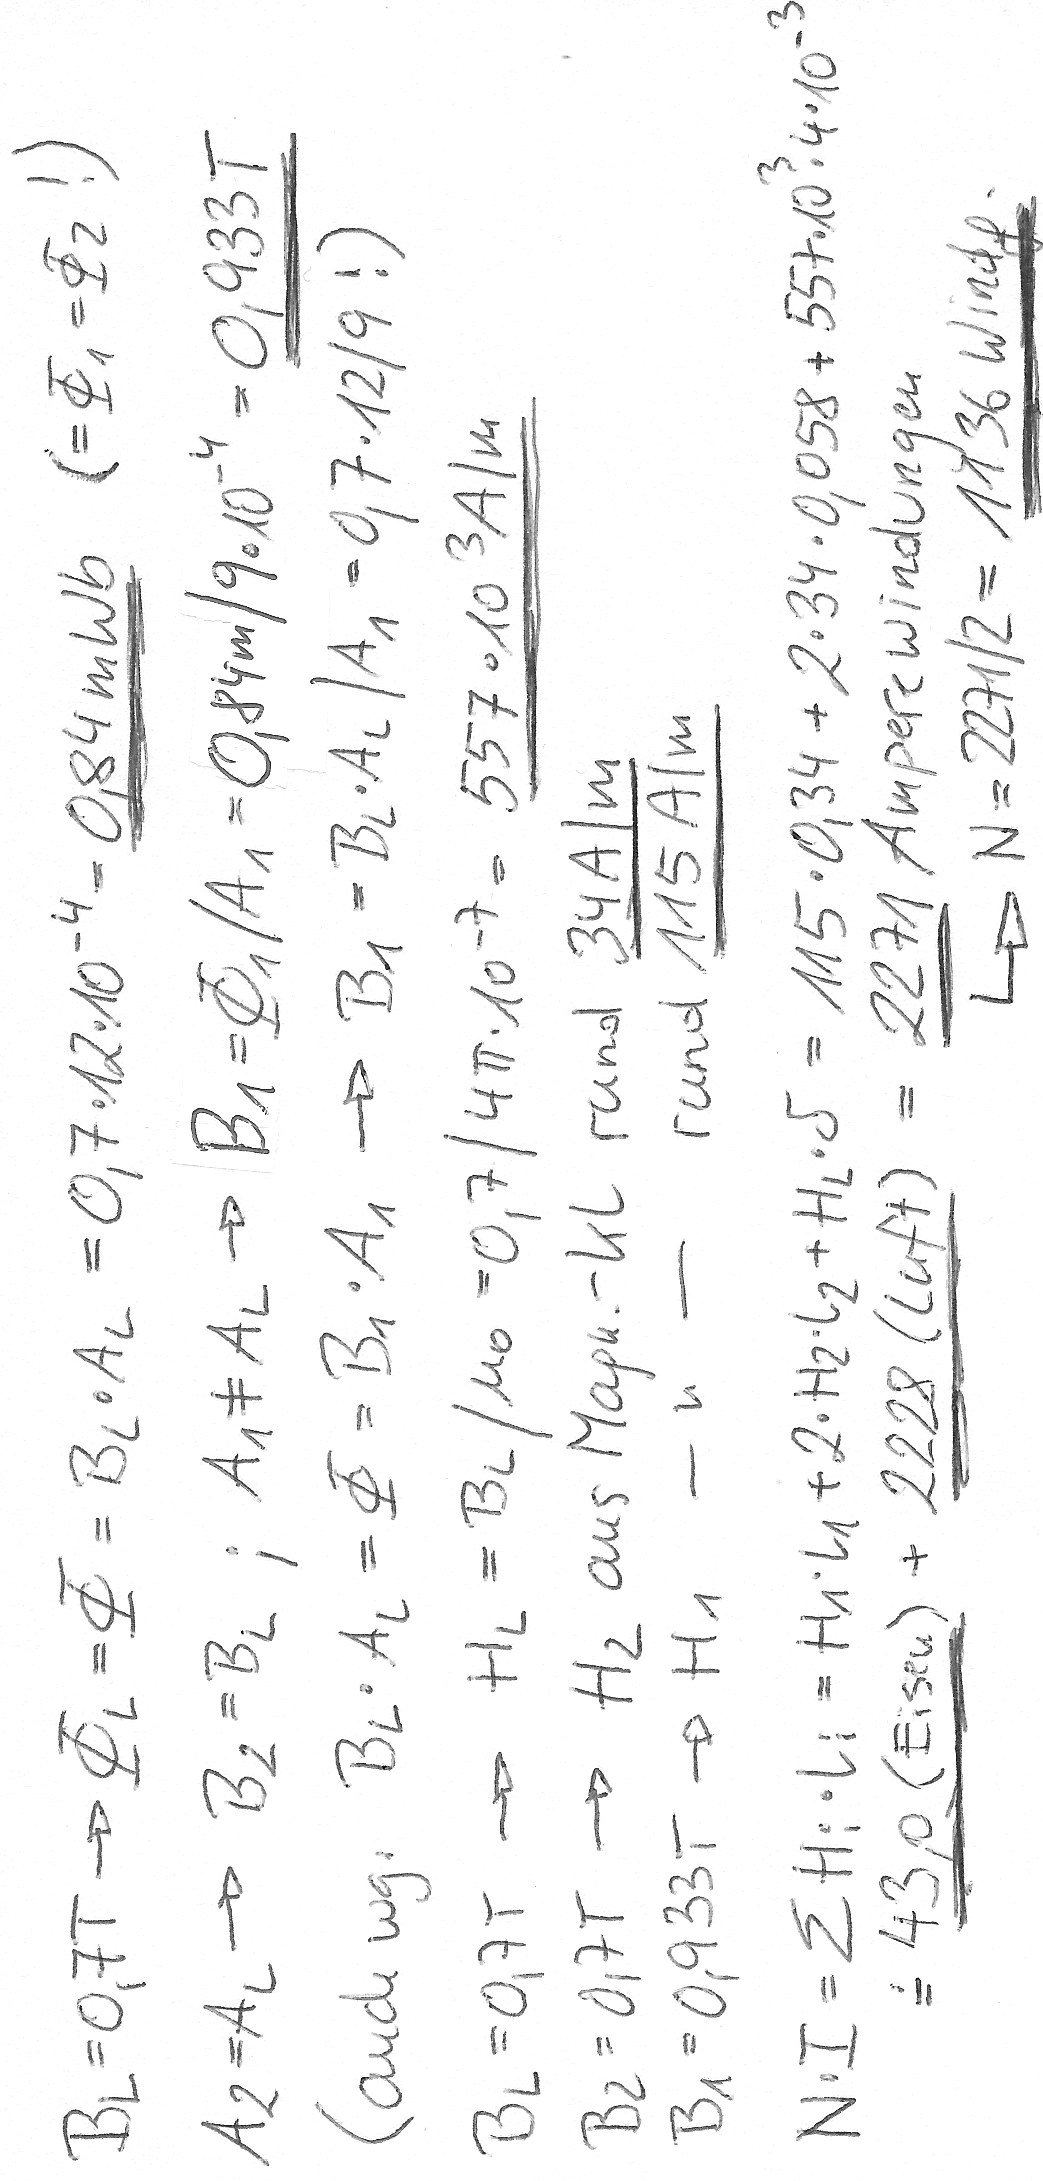 B_L = 0,7T → Φ_L = Φ = B_L · A_L = 0,7·12·10⁻⁴ = 0,84 mWb (= Φ₁ = Φ₂ !)
A₂ = A_L → B₂ = B_L ; A₁ ≠ A_L → B₁ = Φ₁/A₁ = 0,84m/9·10⁻⁴ = 0,933T
(auch wg. B_L · A_L = Φ = B₁ · A₁ → B₁ = B_L · A_L / A₁ = 0,7·12/9 !)
B_L = 0,7T → H_L = B_L/μ₀ = 0,7/4π·10⁻⁷ = 557·10³ A/m
B₂ = 0,7T → H₂ aus Magn.-KL rund 34 A/m
B₁ = 0,933T → H₁ — " — rund 115 A/m
N·I = ΣHᵢ·Lᵢ = H₁·L₁ + 2·H₂·L₂ + H_L·δ = 115·0,34 + 2·34·0,058 + 557·10³·4·10⁻³
≐ 43,0 (Eisen) + 2228 (Luft) = 2271 Amperewindungen
↳ N = 2271/2 = 1136 Windg.